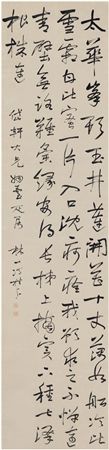 太華峰頭玉井蓮開花十丈藕如船冷比
雪霜甘比蜜一片入口沈痾痊我欲求之不憚遠
青壁無路難夤緣安得長梯上摘實下種七澤
根株連
大兄
林